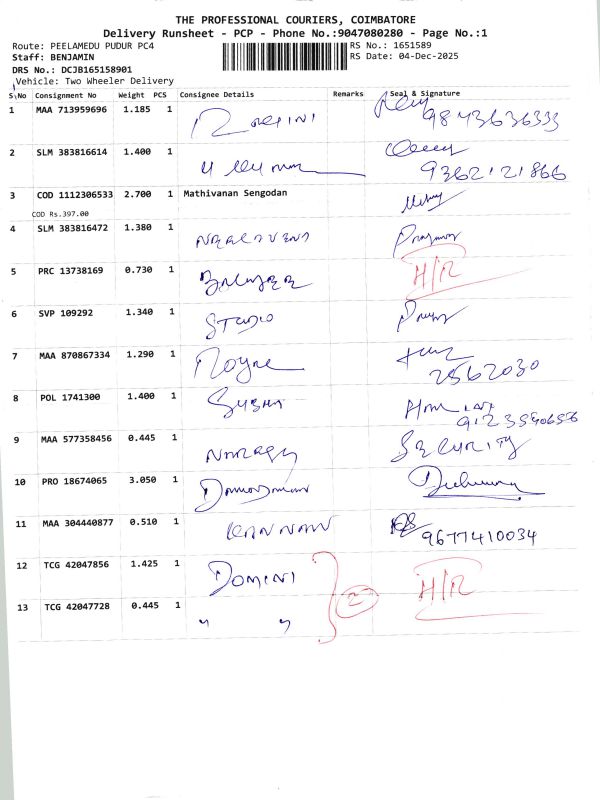 THE PROFESSIONAL COURIERS, COIMBATORE
Delivery Runsheet - PCP - Phone No.:9047080280 - Page No.:1
Route: PEELAMEDU PUDUR PC4 RS No.: 1651589
Staff: BENJAMIN RS Date: 04-Dec-2025
DRS No.: DCJB165158901
Vehicle: Two Wheeler Delivery
S\No Consignment No Weight PCS Consignee Details Remarks Seal & Signature
1 MAA 713959696 1.185 1
9843636333
2 SLM 383816614 1.400 1
9362121866
3 COD 1112306533 2.700 1 Mathivanan Sengodan
COD Rs.397.00
4 SLM 383816472 1.380 1
5 PRC 13738169 0.730 1 H/R
6 SVP 109292 1.340 1 STUDIO
7 MAA 870867334 1.290 1
2562030
8 POL 1741300 1.400 1
9 MAA 577358456 0.445 1 SECURITY
10 PRO 18674065 3.050 1
11 MAA 304440877 0.510 1 KANNAN
9677410034
12 TCG 42047856 1.425 1 DOMINI H/R
2
13 TCG 42047728 0.445 1 " "